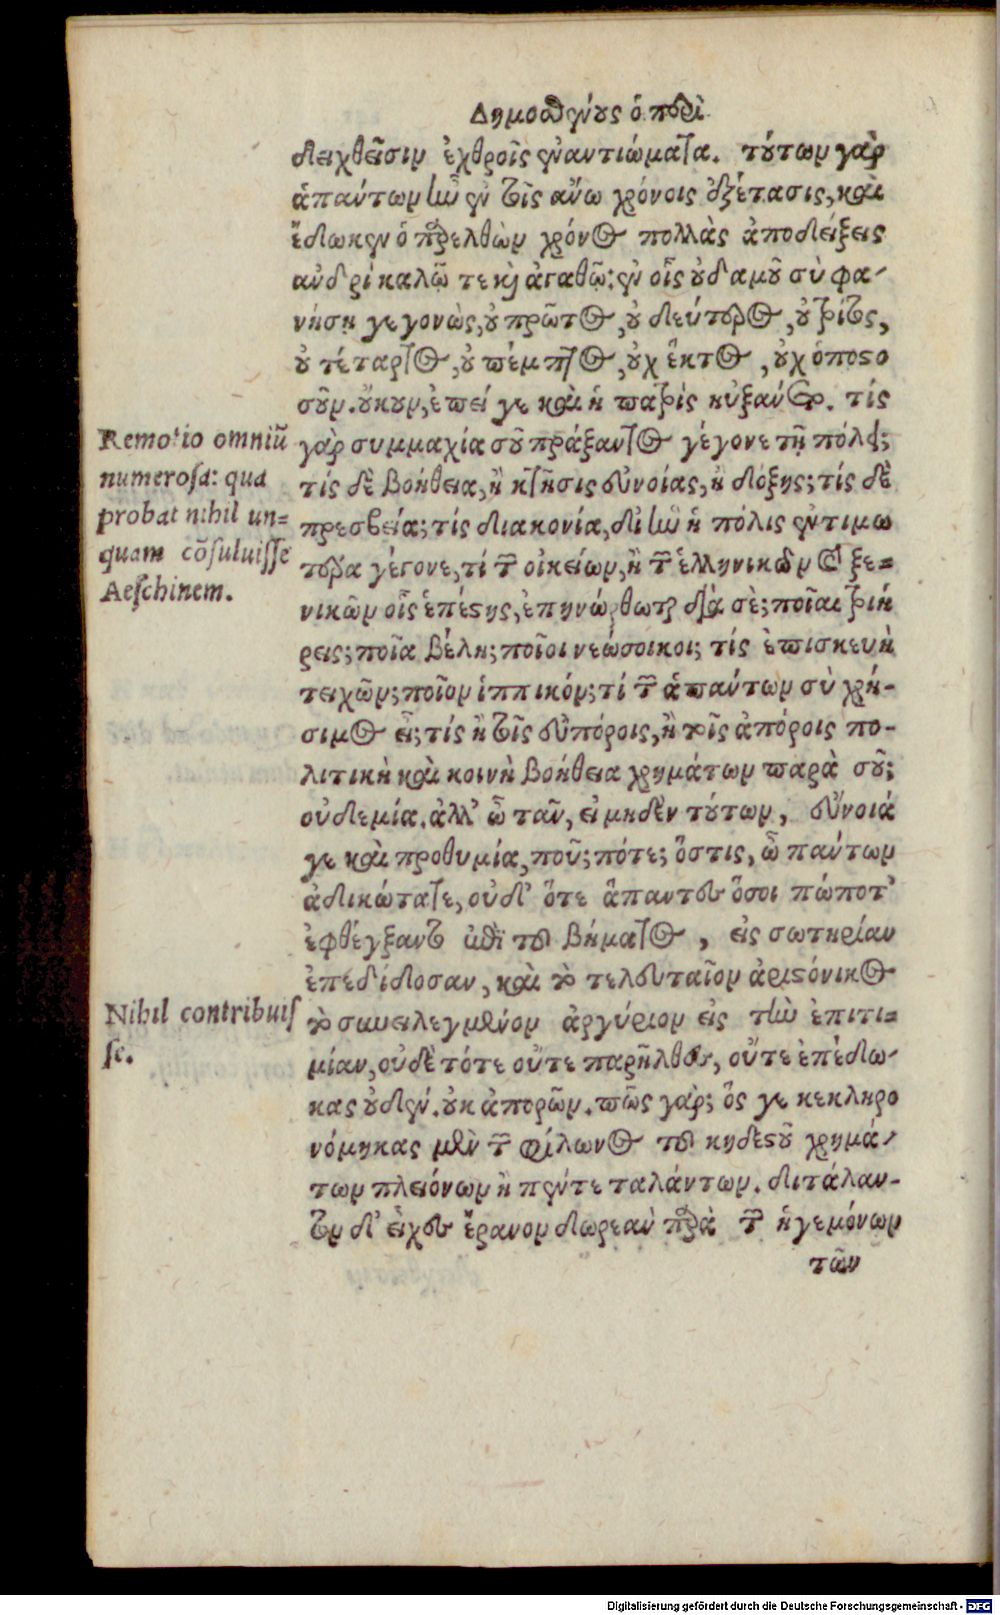 Δημοσθένους ὁ περὶ
δειχθεῖσιν ἐχθροῖς ἐναντιώματα. τούτων γὰρ
ἁπάντων ἦν ἐν τοῖς ἄνω χρόνοις ἐξέτασις, καὶ
ἔδωκεν ὁ παρελθὼν χρόνος πολλὰς ἀποδείξεις
ἀνδρὶ καλῷ τε καὶ ἀγαθῷ: ἐν οἷς οὐδαμοῦ σὺ φα-
νήσῃ γεγονὼς, οὐ πρῶτος, οὐ δεύτερος, οὐ τρίτος,
οὐ τέταρτος, οὐ πέμπτος, οὐχ ἕκτος, οὐχ ὁποσο
σοῦν. οὔκουν, ἐπεί γε καὶ ἡ πατρὶς ηὐξάνετο. τίς
γὰρ συμμαχία σοῦ πράξαντος γέγονε τῇ πόλει;
τίς δὲ βοήθεια, ἢ κτῆσις εὐνοίας, ἢ δόξης; τίς δὲ
πρεσβεία; τίς διακονία, δι' ἣν ἡ πόλις ἐντιμω
τέρα γέγονε, τί τῶν οἰκείων, ἢ τῶν ἑλληνικῶν καὶ ξε=
νικῶν οἷς ἐπέστης, ἐπηνώρθωται διὰ σὲ; ποῖαι τριή
ρεις; ποῖα βέλη; ποῖοι νεώσοικοι; τίς ἐπισκευὴ
τειχῶν; ποῖον ἱππικόν; τί τῶν ἁπάντων σὺ χρή-
σιμος εἶ; τίς ἢ τοῖς εὐπόροις, ἢ τοῖς ἀπόροις πο-
λιτικὴ καὶ κοινὴ βοήθεια χρημάτων παρὰ σοῦ;
οὐδεμία. ἀλλ' ὦ τᾶν, εἰ μηδὲν τούτων, εὔνοιά
γε καὶ προθυμία, ποῦ; πότε; ὅστις, ὦ πάντων
ἀδικώτατε, οὐδ' ὅτε ἅπαντες ὅσοι πώποτ'
ἐφθέγξαντο ἐπὶ τοῦ βήματος, εἰς σωτηρίαν
ἐπεδίδοσαν, καὶ τὸ τελευταῖον ἀριστόνικος
τὸ συνειλεγμένον ἀργύριον εἰς τὴν ἐπιτι=
μίαν, οὐδὲ τότε οὔτε παρῆλθες, οὔτε ἐπέδω-
κας οὐδέν. οὐκ ἀπορῶν. πῶς γὰρ; ὅς γε κεκληρο
νόμηκας μὲν τῶν φίλωνος τοῦ κηδεστοῦ χρημά-
των πλειόνων ἢ πέντε ταλάντων. διτάλαν-
τον δ' εἶχες ἔρανον δωρεὰν παρὰ τῶν ἡγεμόνων
τῶν
Remotio omniũ
numerosa: qua
probat nihil un=
quam cõsuluisse
Aeschinem.
Nihil contribuis
se.
Digitalisierung gefördert durch die Deutsche Forschungsgemeinschaft - DFG